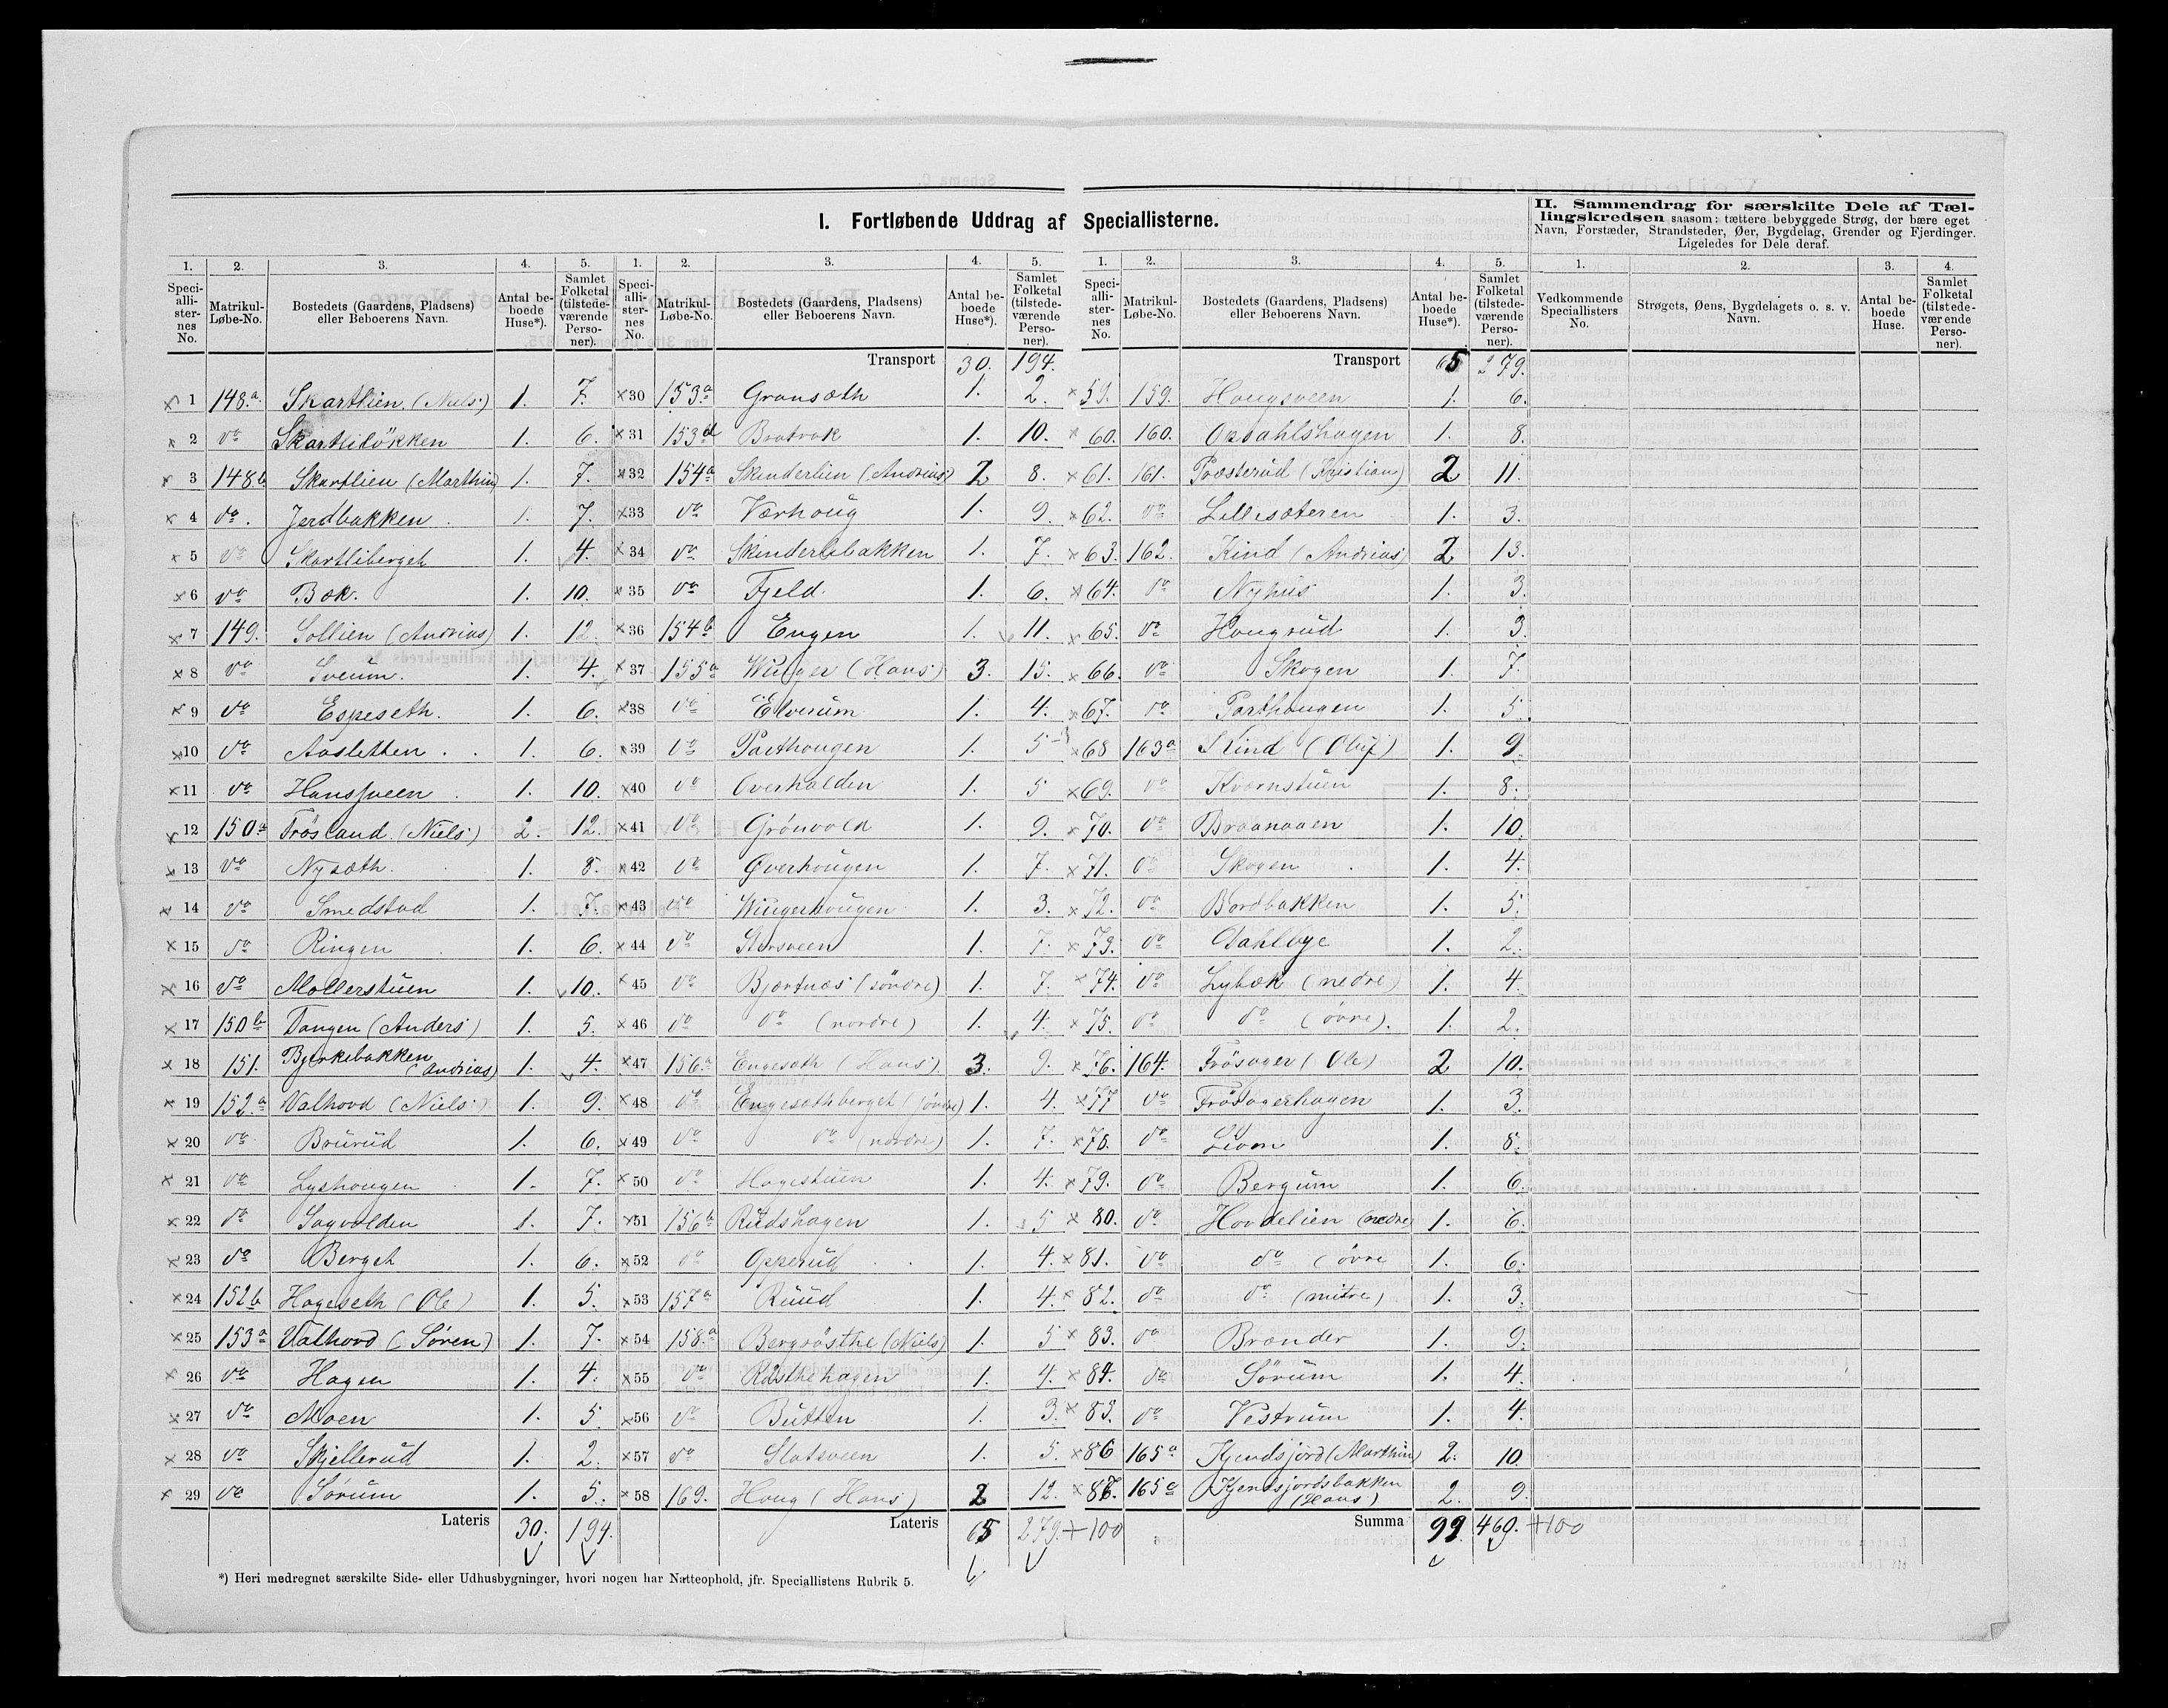 I. Fortløbende Uddrag af Speciallisterne.
II. Sammendrag for særskilte Dele af Tællingskredsen saasom: tættere bebyggede Strøg, der bære eget
Navn, Forstæder, Strandsteder, Øer, Bygdelag, Grender og Fjerdinger.
Ligeledes for Dele deraf.
1. 2. 3. 4. 5.
Speciallisternes No. Matrikul-Løbe-No. Bostedets (Gaardens, Pladsens) eller Beboerens Navn. Antal beboede Huse*). Samlet Folketal (tilstedeværende Personer).
1 148.a. Skartlien (Niels) 1. 7.
2 do Skartlidökken 1. 6.
3 148b Skartlien (Marthin) 1. 7.
4 do. Jerdbakken 1. 7.
5 do Skartliberget 1. 4.
6 do Bæk. 1. 10.
7 149. Sollien (Andrias) 1. 12.
8 do Sveum. 1. 4.
9 do Espeseth. 1. 6.
10 do Aasletten 1. 6.
11 do Hanssveen 1. 10.
12 150.a Frösland (Niels) 2. 12.
13 do Nysæth. 1. 8.
14 do Smedstad 1. 7.
15 do Ringen 1. 6.
16 do Mollerstuen 1. 10.
17 150b Dangen (Anders) 1. 5.
18 151. Bjerkebakken (Andrias) 1. 4.
19 152.a Valhovd (Niels) 1. 9.
20 do Brurud 1. 6.
21 do Lyshougen 1. 7.
22 do Sagvolden 1. 7.
23 do Berget 1. 6.
24 152b Hageseth (Ole) 1. 5.
25 153a Valhovd (Sören) 1. 7.
26 do Hagen 1. 4.
27 do Moen 1. 5.
28 do Skjellerud 1. 2.
29 do Sörum 1. 5.
Lateris 30. 194.
1. 2. 3. 4. 5.
Speciallisternes No. Matrikul-Løbe-No. Bostedets (Gaardens, Pladsens) eller Beboerens Navn. Antal beboede Huse*). Samlet Folketal (tilstedeværende Personer).
Transport 30. 194.
30 153a Gransæth 1. 2.
31 153d Bratrok 1. 10.
32 154a Skinderlien (Andrias) 2 8.
33 do Værhoug 1. 9.
34 do Skinderlibakken 1. 7.
35 do Fjeld. 1. 6.
36 154b Engen 1. 11.
37 155a Winger (Hans) 3. 15.
38 do Elverum 1. 4.
39 do Parthougen 1. 5
40 do Overhalden 1. 5
41 do Grönvold 1. 9.
42 do Overhougen 1. 7.
43 do Wingerhougen 1. 3.
44 do Storsveen 1. 7.
45 do Bjærtnæs (söndre) 1. 7.
46 do do (nordre) 1. 4.
47 156.a Engesæth (Hans) 3. 9.
48 do Engesæthberget (söndre) 1. 4.
49 do do (nordre) 1. 7.
50 do Hagestuen 1. 4.
51 156b Rudshagen 1. 5
52 do Opperud 1. 4.
53 157a Ruud 1. 4.
54 158.a Bergrösthe (Niels) 1. 5
55 do Rösthehagen 1. 4.
56 do Butten 1. 3.
57 do Slatsveen 1. 5.
58 169. Houg (Hans) 2 12.
Lateris 65 279. +100
1. 2. 3. 4. 5.
Speciallisternes No. Matrikul-Løbe-No. Bostedets (Gaardens, Pladsens) eller Beboerens Navn. Antal beboede Huse*). Samlet Folketal (tilstedeværende Personer).
Transport 65 279.
59. 159. Hougsveen 1. 6.
60. 160. Opsahlshagen 1. 8.
61. 161. Præsterud (Kristian) 2 11.
62. do Lillesæteren 1. 3.
63. 162. Kind (Andrias) 2 13.
64. do Nyhus 1. 3.
65. do Hougrud 1. 3.
66. do Skogen 1. 7.
67. do Parthougen 1. 5.
68 163a Kind (Oluf) 1. 9.
69. do Kværnstuen 1. 8.
70. do Braanaaen 1. 10.
71. do Skogen 1. 4.
72. do Bordbakken 1. 5.
73. do Dahlbye 1. 2.
74. do Lybæk (nedre) 1. 4.
75. do do (övre). 1. 2.
76. 164. Frösager (Ole) 2 10.
77 do Frösagerhagen 1. 3.
78. do Livom 1. 8.
79. do Bergum 1. 6.
80. do Hovdelien (nedre) 1. 6.
81. do do (övre 1. 6.
82. do do (mitre) 1. 3.
83. do Brænder 1. 9.
84. do Sörum 1. 4.
85. do Vestrum 1. 4.
86 165a Kjendsjord (Marthin) 2. 10.
87. 165c Kjendsjordsbakken (Hans) 2. 9.
Summa 99. 460. +100
1. 2. 3. 4.
Vedkommende Speciallisters No. Strøgets, Øens, Bygdelagets o. s. v. Navn. Antal beboede Huse. Samlet Folketal (tilstedeværende Personer).
*) Heri medregnet særskilte Side- eller Udhusbygninger, hvori nogen har Natteophold, jfr. Speciallistens Rubrik 5.